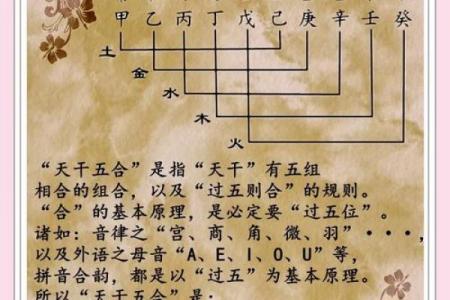 甲 乙 丙 丁 戊 己 庚 辛 壬 癸
土
金
水
木
火
“天干五合”是指“天干”有五组
相合的组合，以及“过五则合”的规则。
“合”的基本原理，是必定要“过五位”。
诸如：音律之“宫、商、角、徵、羽”···，
以及外语之母音“A、E、I、O、U”等，
拼音合韵，都是以“过五”为基本原理。
所以“天干五合”是：